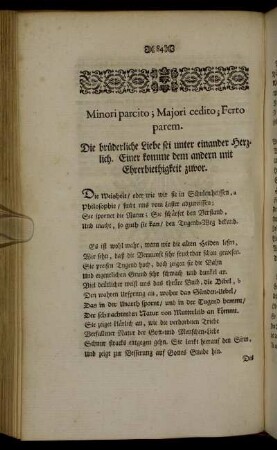 84
Minori parcito; Majori cedito; Ferto
parem.
Die brüderliche Liebe sei unter einander Herz-
lich. Einer komme dem andern mit
Ehrerbiethigkeit zuvor.
Die Weisheit/ oder wie wir sie in Schulen heissen,
Philosophie/ führt uns vom Laster
Sie spornet die Naturen: Sie schärfet den Verstand,
Und macht, so guth sie kan/ den Tugend-Weg bekand.
Es ist wohl wahr, wann wir die alten Heiden lesen,
Wie sehr, daß die Vernunft sehr fruchtbar schon gewesen.
Sie prosen Tugend hoch, doch zeigen sie die Bahn
Und eigentlichen Grund sehr schwach und dunkel an.
Viel deutlicher weißt uns das theure Buch, die Bibel,
Den wahren Ursprung an, woher das Sünden-Uebel,
Das in der Wurtz sparen/ und in der Tugend hemmt,
Der schwachmuthen Natur von Mutterleib an
Sie zeiget klärlich an, wie die verdorbnen Triebe
Verfallener Natur der Gott- und Menschen-Liebe
Schnur stracks entgegen gehn. Sie lenkt herauf den Sinn,
Und zeigt zur Besserung auf Gottes Gnade hin.
Das